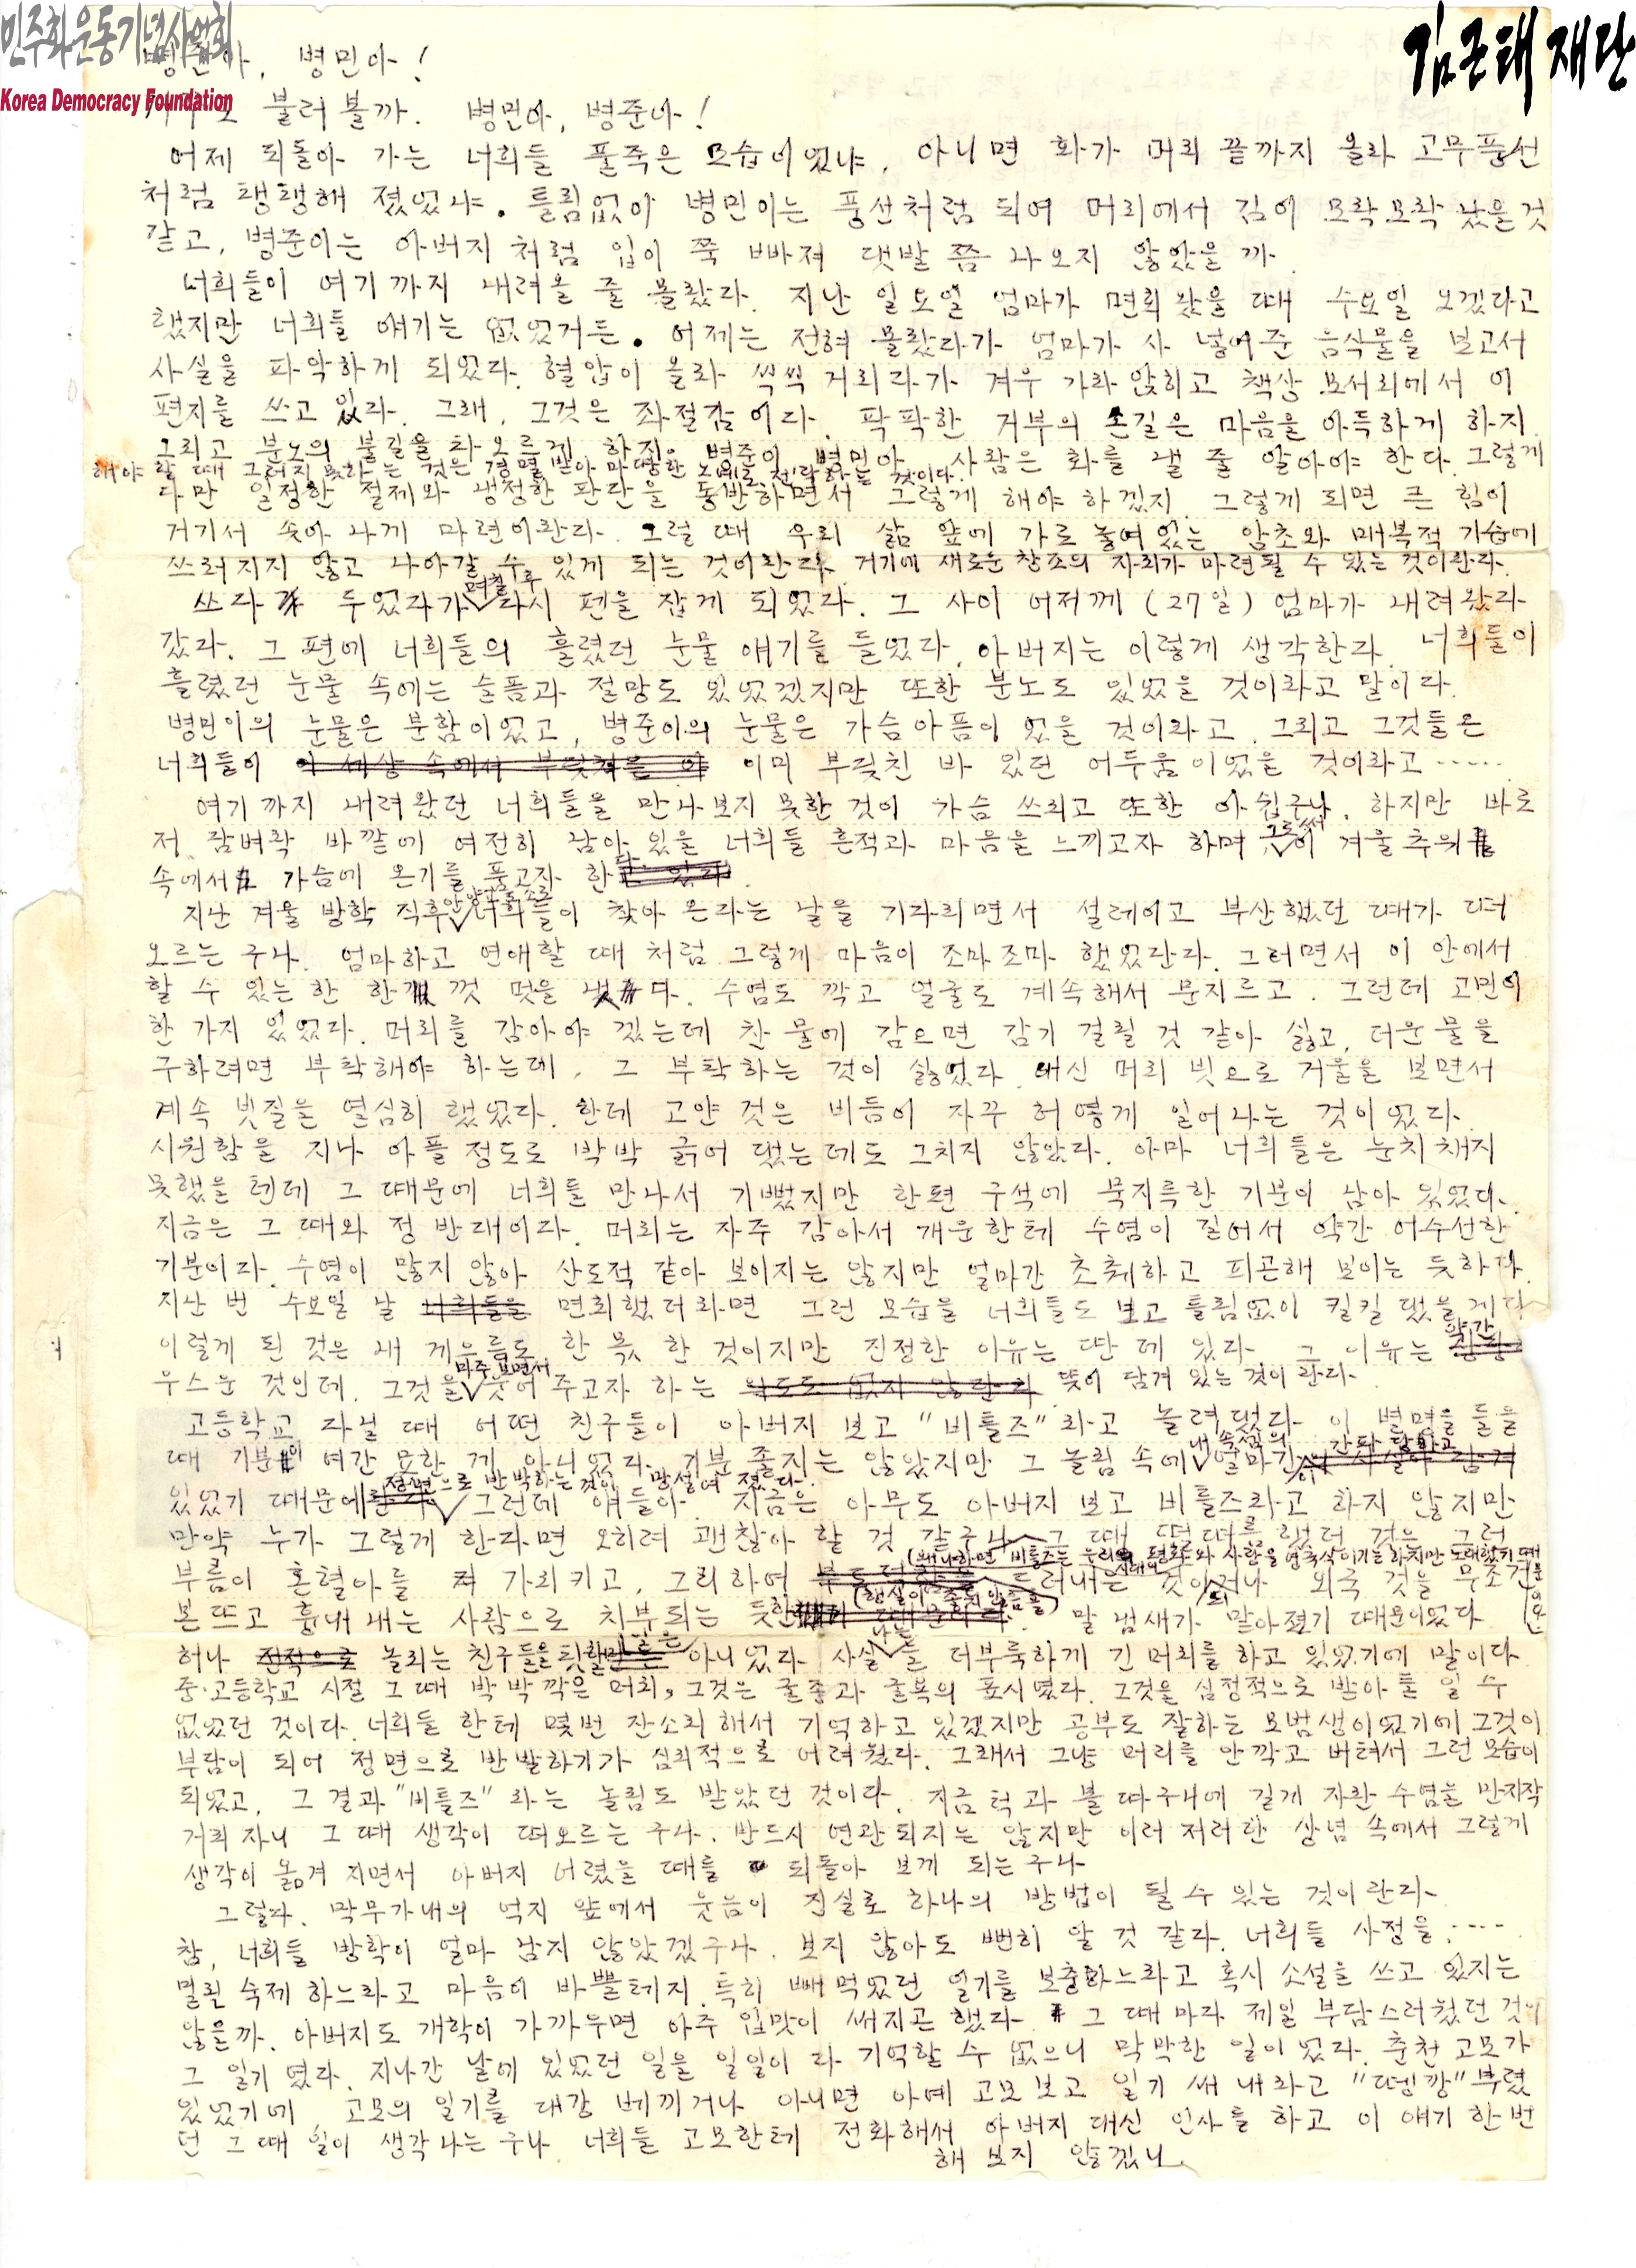 민주화운동기념사업회
Korea Democracy Foundation
김근태 재단
병준아, 병민아!
불러 볼까. 병민아, 병준아!
어제 되돌아 가는 너희들 풀죽은 모습이었냐, 아니면 화가 머리 끝까지 올라 고무풍선
처럼 탱탱해 졌었냐. 틀림없이 병민이는 풍선처럼 되여 머리에서 김이 모락모락 났을것
같고, 병준이는 아버지 처럼 입이 쭉 빠져 댓발 쯤 나오지 않았을 까.
너희들이 여기 까지 내려올 줄 몰랐다. 지난 일요일 엄마가 면회 왔을 때 수요일 오겠다고
했지만 너희들 얘기는 없었거든. 어제는 전혀 몰랐다가 엄마가 사 넣어준 음식물을 보고서
사실을 파악하게 되었다. 혈압이 올라 씩씩 거리다가 겨우 가라 앉히고 책상 모서리에서 이
편지를 쓰고 있다. 그래, 그것은 좌절감이다. 팍팍한 거부의 손길은 마음을 아득하게 하지.
그리고 분노의 불길을 차오르게 하지. 병준아 병민아, 사람은 화를 낼 줄 알아야 한다. 그렇게
해야 할 때 그러지 못하는 것은 경멸 받아 마땅한 노예로 전락하는 것이다.
다만 일정한 절제와 냉정한 판단을 동반하면서 그렇게 해야 하겠지. 그렇게 되면 큰 힘이
거기서 솟아 나게 마련이란다. 그럴 때 우리 삶 앞에 가로 놓여있는 암초와 매복적 기습에
쓰러지지 않고 나아갈 수 있게 되는 것이란다. 거기에 새로운 창조의 자리가 마련될 수 있는 것이란다.
쓰다 두었다가 며칠 후 다시 펜을 잡게 되었다. 그 사이 어저께 (27일) 엄마가 내려왔다
갔다. 그 편에 너희들의 흘렸던 눈물 얘기를 들었다. 아버지는 이렇게 생각한다. 너희들이
흘렸던 눈물 속에는 슬픔과 절망도 있었겠지만 또한 분노도 있었을 것이라고 말이다.
병민이의 눈물은 분함이었고, 병준이의 눈물은 가슴아픔이 었을 것이라고. 그리고 그것들은
너희들이 이미 부딪친 바 있던 어두움이었을 것이라고 .....
여기 까지 내려왔던 너희들을 만나보지 못한 것이 가슴 쓰리고 또한 아쉽구나. 하지만 바로
저 담벼락 바깥에 여전히 남아 있을 너희들 흔적과 마음을 느끼고자 하며 그로써 이 겨울추위
속에서 가슴에 온기를 품고자 한다.
지난 겨울 방학 직후 안양교도소로 너희들이 찾아 온다는 날을 기다리면서 설레이고 부산했던 때가 떠
오르는 구나. 엄마하고 연애할 때 처럼 그렇게 마음이 조마조마 했었단다. 그러면서 이 안에서
할 수 있는 한 한껏 멋을 냈다. 수염도 깍고 얼굴도 계속해서 문지르고. 그런데 고민이
한 가지 있었다. 머리를 감아야 겠는데 찬 물에 감으면 감기 걸릴 것 같아 싫고, 더운 물을
구하려면 부탁해야 하는데, 그 부탁하는 것이 싫었다. 대신 머리 빗으로 거울을 보면서
계속 빗질을 열심히 했었다. 한데 고얀 것은 비듬이 자꾸 허옇게 일어나는 것이었다.
시원함을 지나 아플 정도로 박박 긁어 댔는데도 그치지 않았다. 아마 너희들은 눈치 채지
못했을 텐데 그 때문에 너희들 만나서 기뻤지만 한편 구석에 묵지륵한 기분이 남아 있었다.
지금은 그 때와 정 반대이다. 머리는 자주 감아서 개운한테 수염이 길어서 약간 어수선한
기분이다. 수염이 많지 않아 산도적 같아 보이지는 않지만 얼마간 초췌하고 피곤해 보이는 듯하다.
지난 번 수요일 날 면회했더라면 그런 모습을 너희들도 보고 틀림없이 킬킬 댔을게다.
이렇게 된 것은 내 게으름도 한 몫 한 것이지만 진정한 이유는 딴 데 있다. 그 이유는 약간
우스운 것인데, 그것을 마주 보면서 웃어 주고자 하는 뜻이 담겨 있는 것이란다.
고등학교 다닐 때 어떤 친구들이 아버지 보고 "비틀즈"라고 놀려댔다. 이 별명을 들을
때 기분이 여간 묘한 게 아니었다. 기분 좋지는 않았지만 그 놀림 속에 내 속셈의 얼마간이 간파 당하고
있었기 때문에 정면으로 반박하는 것이 망설여 졌다. 그런데 얘들아, 지금은 아무도 아버지 보고 비틀즈라고 하지 않지만
만약 누가 그렇게 한다면 오히려 괜찮아 할 것 같구나. 그 때 떨떠름 했던 것은 그런
(왜냐하면 비틀즈는 우리 시대의 평화와 사랑을 영국식이기는 하지만 노래했기 때문이오)
부름이 혼혈아들 켜 가리키고, 그리하여 (행실이 좋지 않음을) 드러내는 것이거나 외국 것을 무조건
본 뜨고 흉내 내는 사람으로 치부되는 듯한 말 냄새가 맡아졌기 때문이었다.
허나 놀리는 친구들을 탓할만 아니었다. 사실 나는 늘 더부룩하게 긴 머리를 하고 있었기에 말이다.
중·고등학교 시절 그 때 박박 깍은 머리, 그것은 굴종과 굴복의 표시였다. 그것을 심정적으로 받아들일 수
없었던 것이다. 너희들 한테 몇번 잔소리 해서 기억하고 있겠지만 공부도 잘하는 모범생이었기에 그것이
부담이 되어 정면으로 반발하기가 심리적으로 어려웠다. 그래서 그냥 머리를 안 깍고 버텨서 그런 모습이
되었고, 그 결과 "비틀즈" 라는 놀림도 받았던 것이다. 지금 턱과 볼 따구니에 길게 자란 수염을 만지작
거리 자니 그 때 생각이 떠오르는 구나. 반드시 연관되지는 않지만 이러 저러한 상념 속에서 그렇게
생각이 옮겨 지면서 아버지 어렸을 때를 되돌아 보게 되는 구나.
그렇다. 막무가내의 억지 앞에서 웃음이 진실로 하나의 방법이 될 수 있는 것이란다.
참, 너희들 방학이 얼마 남지 않았겠구나. 보지 않아도 뻔히 알 것 같다. 너희들 사정을. ....
밀린 숙제 하느라고 마음이 바쁠테지. 특히 빼먹었던 일기를 보충하느라고 혹시 소설을 쓰고 있지는
않을까. 아버지도 개학이 가까우면 아주 입맛이 써지곤 했다. 그 때 마다 제일 부담스러웠던 것이
그 일기 였다. 지나간 날에 있었던 일을 일일이 다 기억할 수 없으니 막막한 일이었다. 춘천 고모가
있었기에 고모의 일기를 대강 베끼거나 아니면 아예 고모 보고 일기 써 내라고 "뗑깡"부렸
던 그 때 일이 생각 나는 구나. 너희들 고모한테 전화해서 아버지 대신 인사를 하고 이 얘기 한번
해 보지 않겠니.